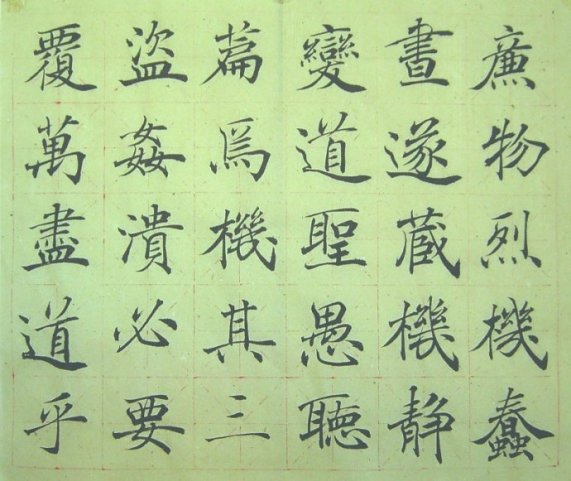 廉物烈機蠢
晝遂蔵機静
變道聖愚聴
篇爲機其三
盜姦潰必要
覆萬盡道乎